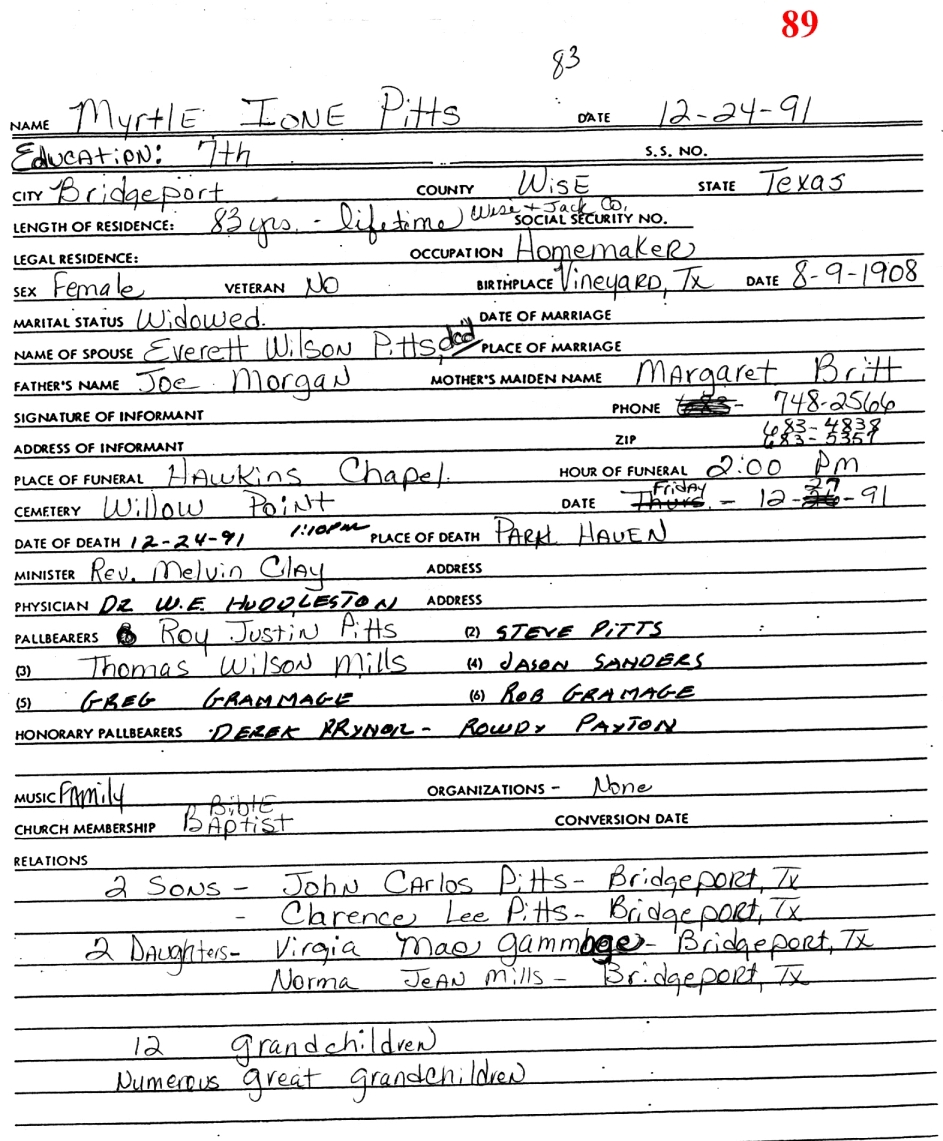 89
83
NAME Myrtle Ione Pitts DATE 12-24-91
Education: 7th S.S. NO.
CITY Bridgeport COUNTY Wise STATE Texas
LENGTH OF RESIDENCE: 83 yrs. - lifetime Wise + Jack Co. SOCIAL SECURITY NO.
LEGAL RESIDENCE: OCCUPATION Homemaker
SEX Female VETERAN No BIRTHPLACE Vineyard, Tx DATE 8-9-1908
MARITAL STATUS Widowed. DATE OF MARRIAGE
NAME OF SPOUSE Everett Wilson Pitts, dcd PLACE OF MARRIAGE
FATHER'S NAME Joe Morgan MOTHER'S MAIDEN NAME Margaret Britt
SIGNATURE OF INFORMANT PHONE 748-2566
683-4838
ADDRESS OF INFORMANT ZIP 683-5357
PLACE OF FUNERAL Hawkins Chapel. HOUR OF FUNERAL 2:00 Pm
CEMETERY Willow Point DATE Thurs. Friday - 12-26 27-91
DATE OF DEATH 12-24-91 1:10PM PLACE OF DEATH Park Haven
MINISTER Rev. Melvin Clay ADDRESS
PHYSICIAN DR W.E. HUDDLESTON ADDRESS
PALLBEARERS Roy Justin Pitts (2) STEVE PITTS
(3) Thomas Wilson Mills (4) JASON SANDERS
(5) GREG GRAMMAGE (6) ROB GRAMAGE
HONORARY PALLBEARERS DEREK - ROWDY PAYTON
MUSIC Family ORGANIZATIONS - None
CHURCH MEMBERSHIP Bible Baptist CONVERSION DATE
RELATIONS
2 Sons - John Carlos Pitts - Bridgeport, Tx
- Clarence Lee Pitts - Bridgeport, Tx
2 Daughters - Virgia Mae Gammage - Bridgeport, Tx
Norma Jean Mills - Bridgeport, Tx
12 grandchildren
Numerous great grandchildren